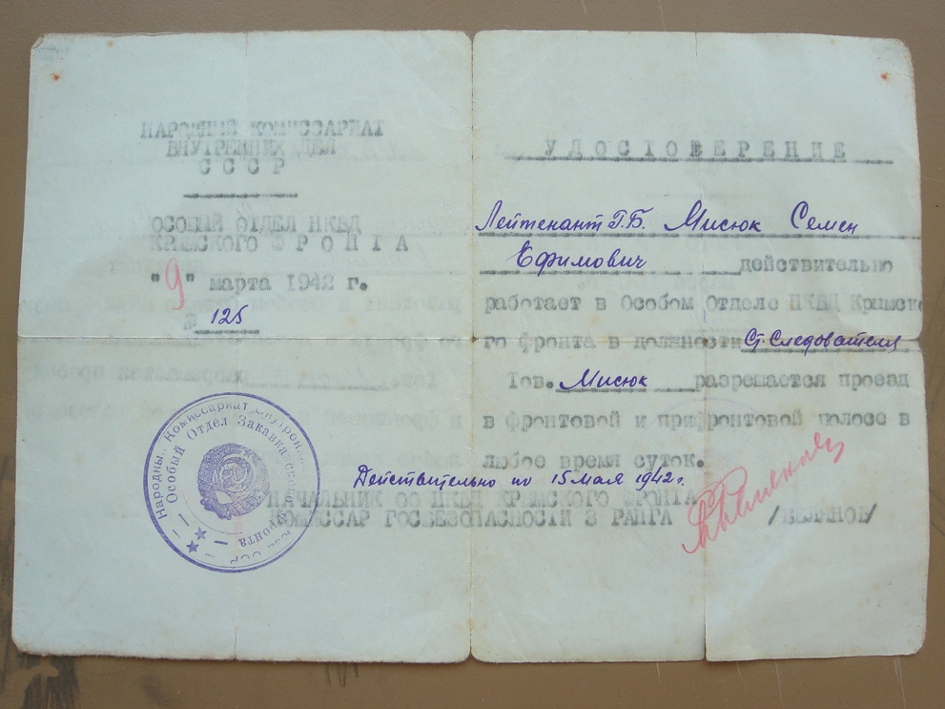 НАРОДНЫЙ КОМИССАРИАТ
ВНУТРЕННИХ ДЕЛ
СССР
ОСОБЫЙ ОТДЕЛ НКВД
КРЫМСКОГО ФРОНТА
"9" марта 1942 г.
№ 125
УДОСТОВЕРЕНИЕ
Лейтенант Г.Б. Мисюк Семен
Ефимович действительно
работает в Особом Отделе НКВД Крымско
го фронта в должности Ст. Следователя
Тов. Мисюк разрешается проезд
в фронтовой и прифронтовой полосе в
любое время суток.
Действительно по 15 мая 1942 г.
НАЧАЛЬНИК ОО НКВД КРЫМСКОГО ФРОНТА
КОМИССАР ГОСБЕЗОПАСНОСТИ 3 РАНГА /БЕЛЯНОВ/
Народны.. Комиссариат Внутрен
Особый Отдел Закавказского Фронта